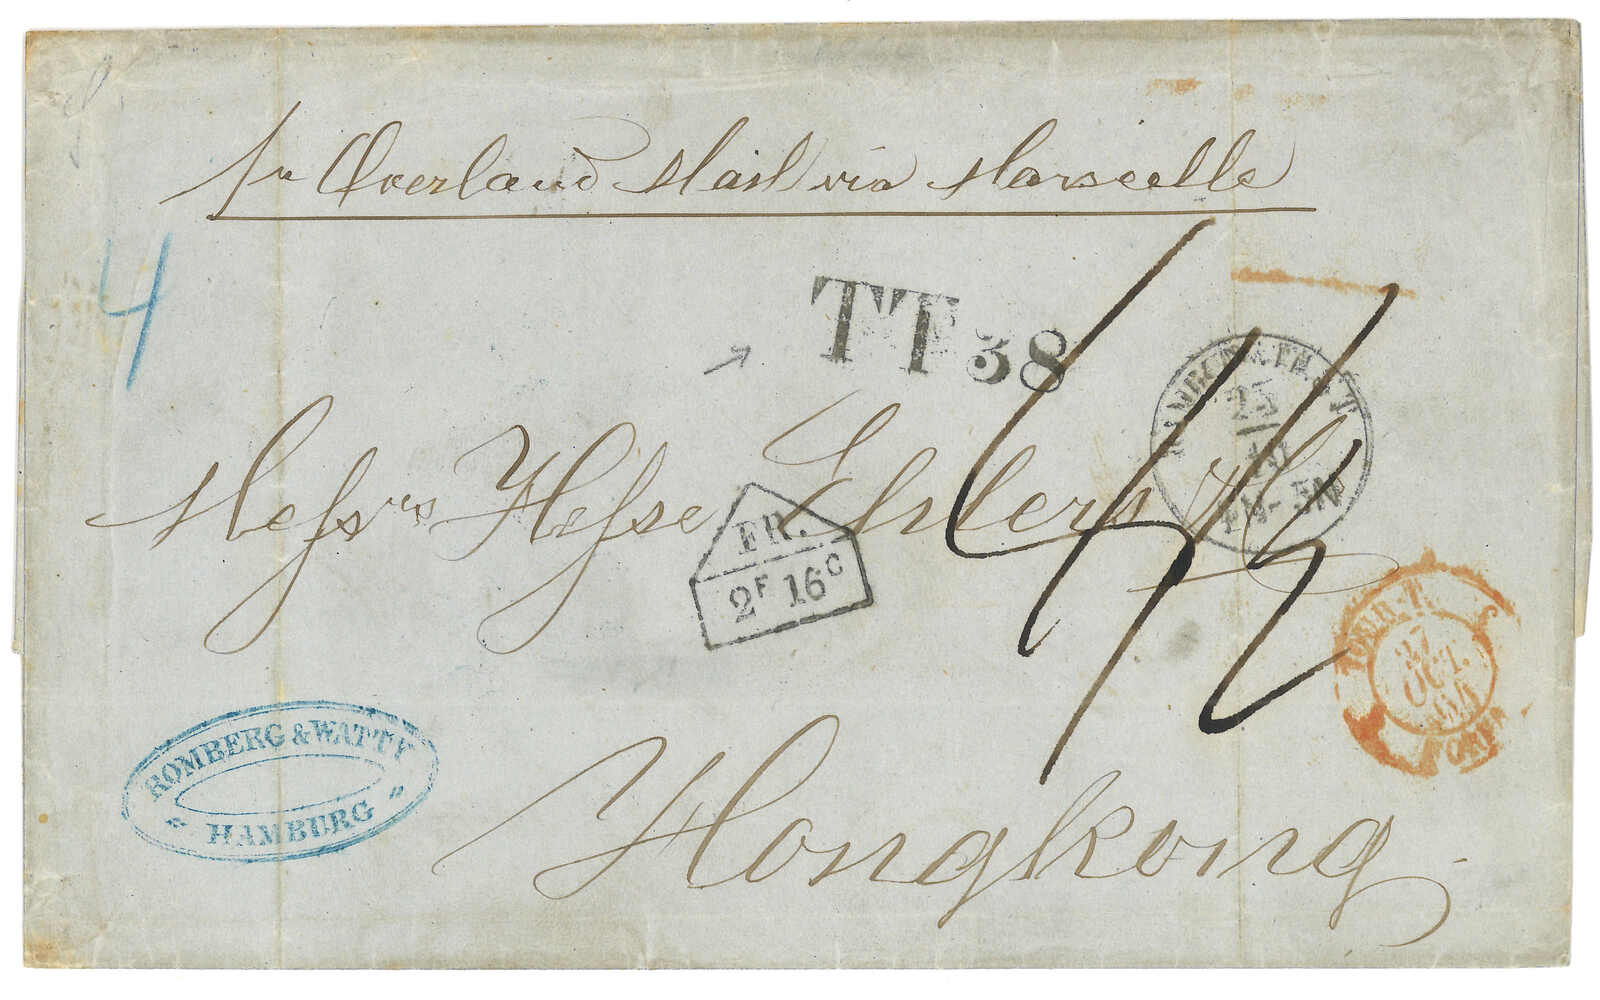 pr Overland Mail via Marseille
4
TT 38
HAMBURG TH. & T.
25
10
FM-5N
Messrs Hesse Ehlers & Co
FR.
2F 16C
TOUR-T.
27
OCT.
64
ROMBERG & WATTY
HAMBURG
Hongkong